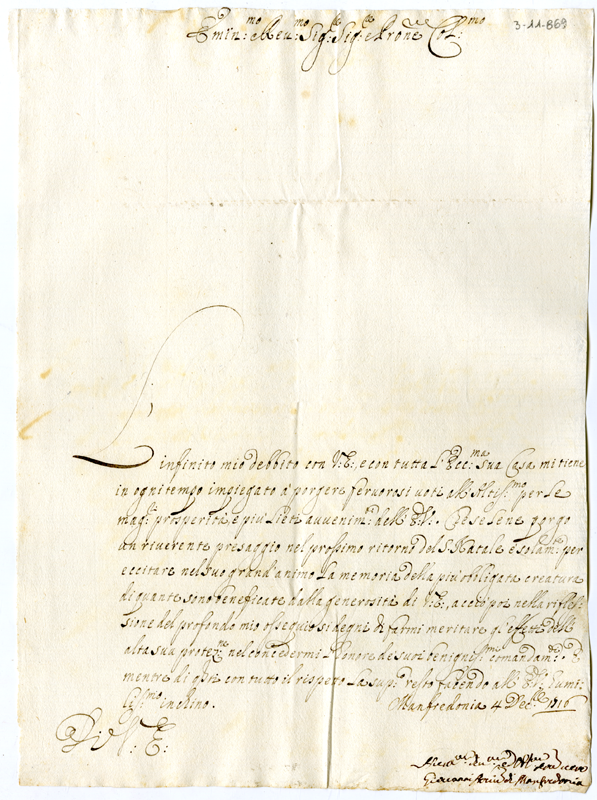 3-11-869
Emin:mo e Reu:mo Sig:re Sig:re e Prone Col:mo
L'infinito mio debbito con V:E:, e con tutta l'Ecc:ma sua Casa mi tiene
in ogni tempo impiegato à porgere fervorosi voti all'Altis:mo per le
mag:ri prosperità, e più lieti avvenim:ti dell'E:V: Che se le ne porgo
un riverente presaggio nel prossimo ritorno del S. Natale è solam:te per
eccitare nel suo grand'animo la memoria della più obligata creatura
di quante sono beneficate dalla generosità di V:E:, acciò poi nella rifles-
sione del profondo mio ossequio si degne di farmi meritare gl'effetti dell'
alta sua protez:ne nel concedermi l'honore de suoi benignis:mi comandam:ti. E
mentre di ciò con tutto il rispetto la sup:co resto facendo all'E:V: humi-
lis:mo inchino. Manfredonia 4 Dec:bre 1716
Di V: E:
Giovanni di Manfredonia